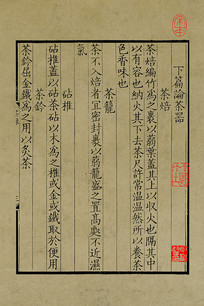 下篇論茶器
茶焙
茶焙編竹為之裹以蒻葉蓋其上以收火也隔其中
以有容也納火其下去茶尺許常溫溫然所以養茶
色香味也
茶籠
茶不入焙者宜密封裹以蒻籠盛之置高處不近濕
氣
砧椎
砧椎蓋以砧茶砧以木為之椎或金或鐵取於便用
茶鈐
茶鈐屈金鐵為之用以炙茶